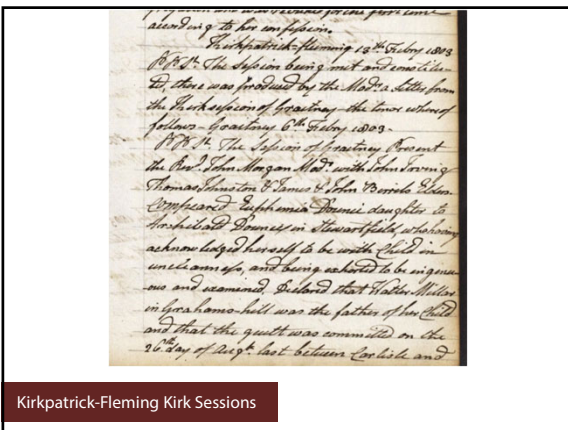 according to her confession.
Kirkpatrick-fleming 13th Febry 1803
The Session being met and constitu-
ted, there was produced by the Modr. a letter from
the Kirk session of Graitney the tenor whereof
follows - Graitney 6th Febry 1803 -
The Session of Graitney Present
the Revd. John Morgan Modr. with John Irving
Thomas Johnston & James & John Elders
Compeared Euphemia Dounie daughter to
Archibald Dounie in Stewartfield, who having
acknowledged herself to be with Child in
uncleanness, and being exhorted to be ingenu-
ous and examined, Declared that Walter Millar
in Grahams-hill was the father of her Child
and that the guilt was committed on the
26th day of Augt. last between Carlisle and
Kirkpatrick-Fleming Kirk Sessions